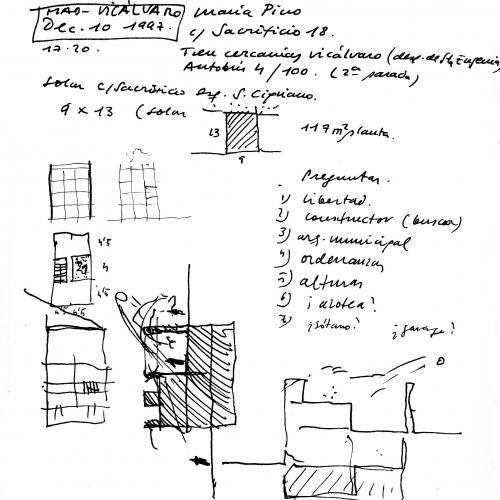 MAD-VICÁLVARO María Pino
Dec. 10 1997. c/ Sacrificio 18.
17.20. Tren cercanías vicálvaro (desp. de Sta Eugenia)
Autobús 4/100. (2ª parada)
Solar c/ Sacrificio esq. S. Cipriano.
9 x 13 (solar
13
9
117 m² planta.
Preguntar.
1) libertad.
2) constructor (buscar)
3) arq. municipal
4) ordenanzas
5) alturas
6) ¿azotea?
7) ¿sótano? ¿garage?
4'5
4
4'5
4'5 4'5